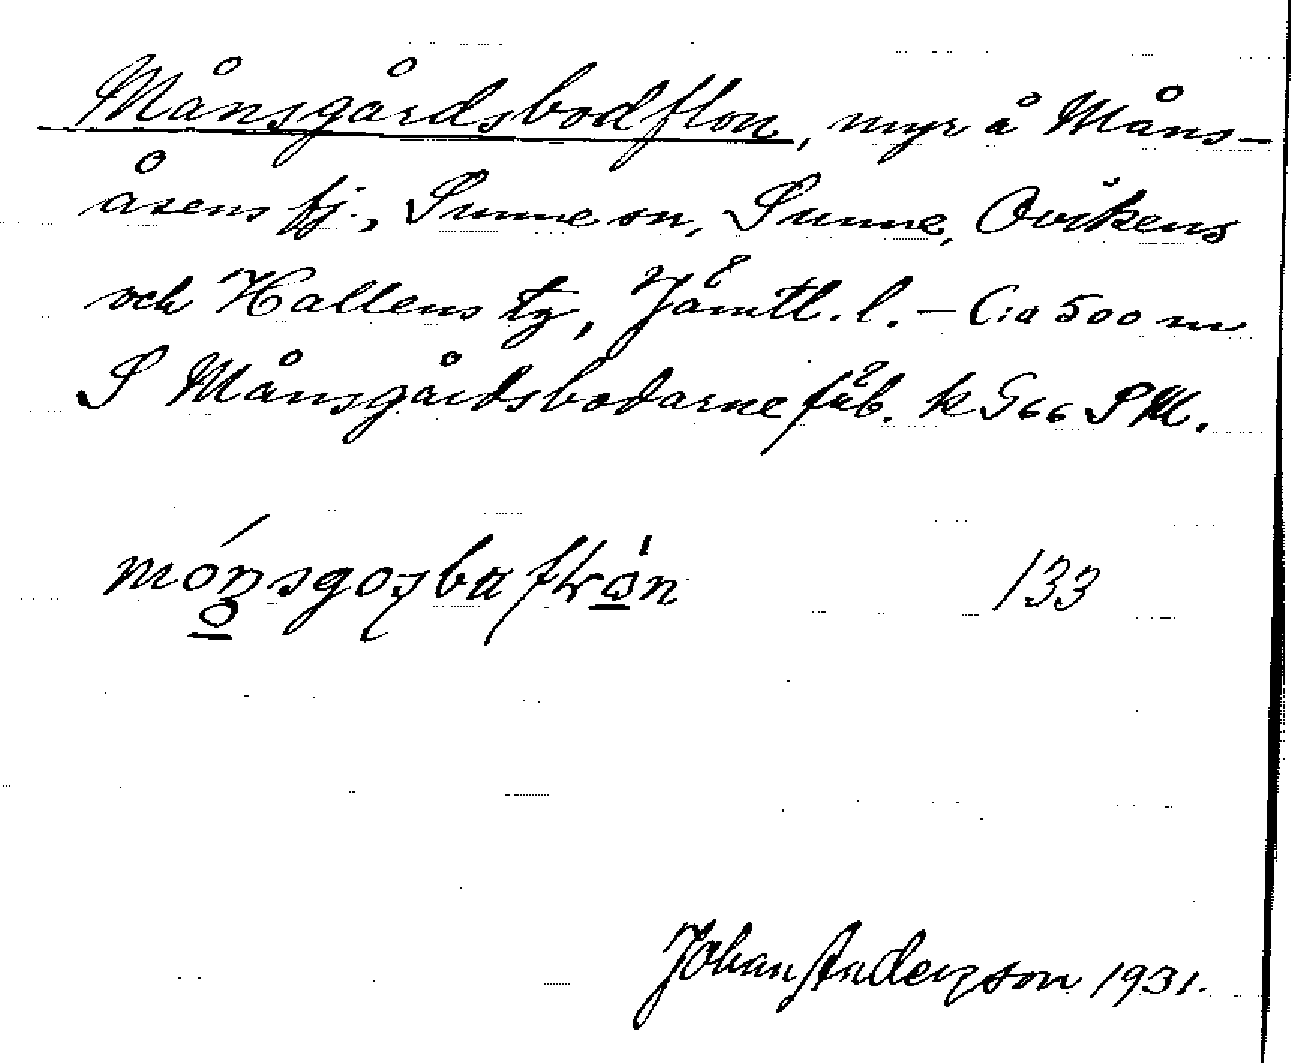 Månsgårdsbodflon, myr å Måns-
åsens fj., Sunne sn, Sunne, Ovikens
och Hallens tg, Jämtl. l. – C:a 500 m
S Månsgårdsbodarne fäb. k G 66 SM.
133
Johan Anderzson 1931.